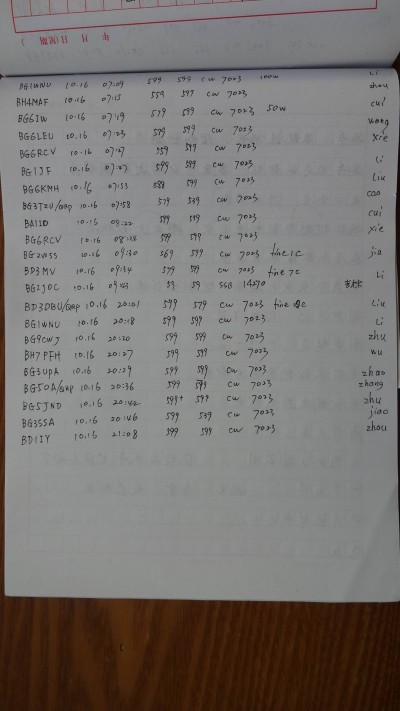 年 月 日(星期 )
BG1WNU 10.16 07:09 599 599 CW 7023 100W Li
BH4MAF 10.16 07:15 559 599 CW 7023 zhou
BG6IW 10.16 07:19 579 599 CW 7023 50W cui
BG6LEU 10.16 07:23 599 599 CW 7023 wang
BG6RCV 10.16 07:27 559 599 CW 7023 xie
BG1JF 10.16 07:27 599 599 CW 7023 Li
BG6KMH 10.16 07:53 588 599 CW 7023 Liu
BG3TZU/QRP 10.16 07:58 579 539 CW 7023 cao
BA1ID 10.16 08:22 599 599 CW 7023 cui
BG6RCV 10.16 08:28 599 599 CW 7023 xie
10.16 09:30 569 599 CW 7023 fine 1C jia
BD3MV 10.16 09:34 579 599 CW 7023 fine 7C
BG2JOC 10.16 09:43 59 59 SSB 14270 Li
BD3DBU/QRP 10.16 20:01 599 579 CW 7023 fine Liu
BG1WNU 10.16 20:18 599 599 CW 7023 Li
BG9CWJ 10.16 20:20 599 599 CW 7023 zhu
BH7PFH 10.16 20:27 599 599 CW 7023 wu
BG3UPA 10.16 20:29 599 599 CW 7023 zhao
BG5OA/QRP 10.16 20:36 599 599 CW 7023 zhang
BG5JND 10.16 20:42 599+ 599 CW 7023 zhu
BG3SSA 10.16 20:46 599 539 CW 7023 jiao
BD1IY 10.16 21:08 599 599 CW 7023 zhou